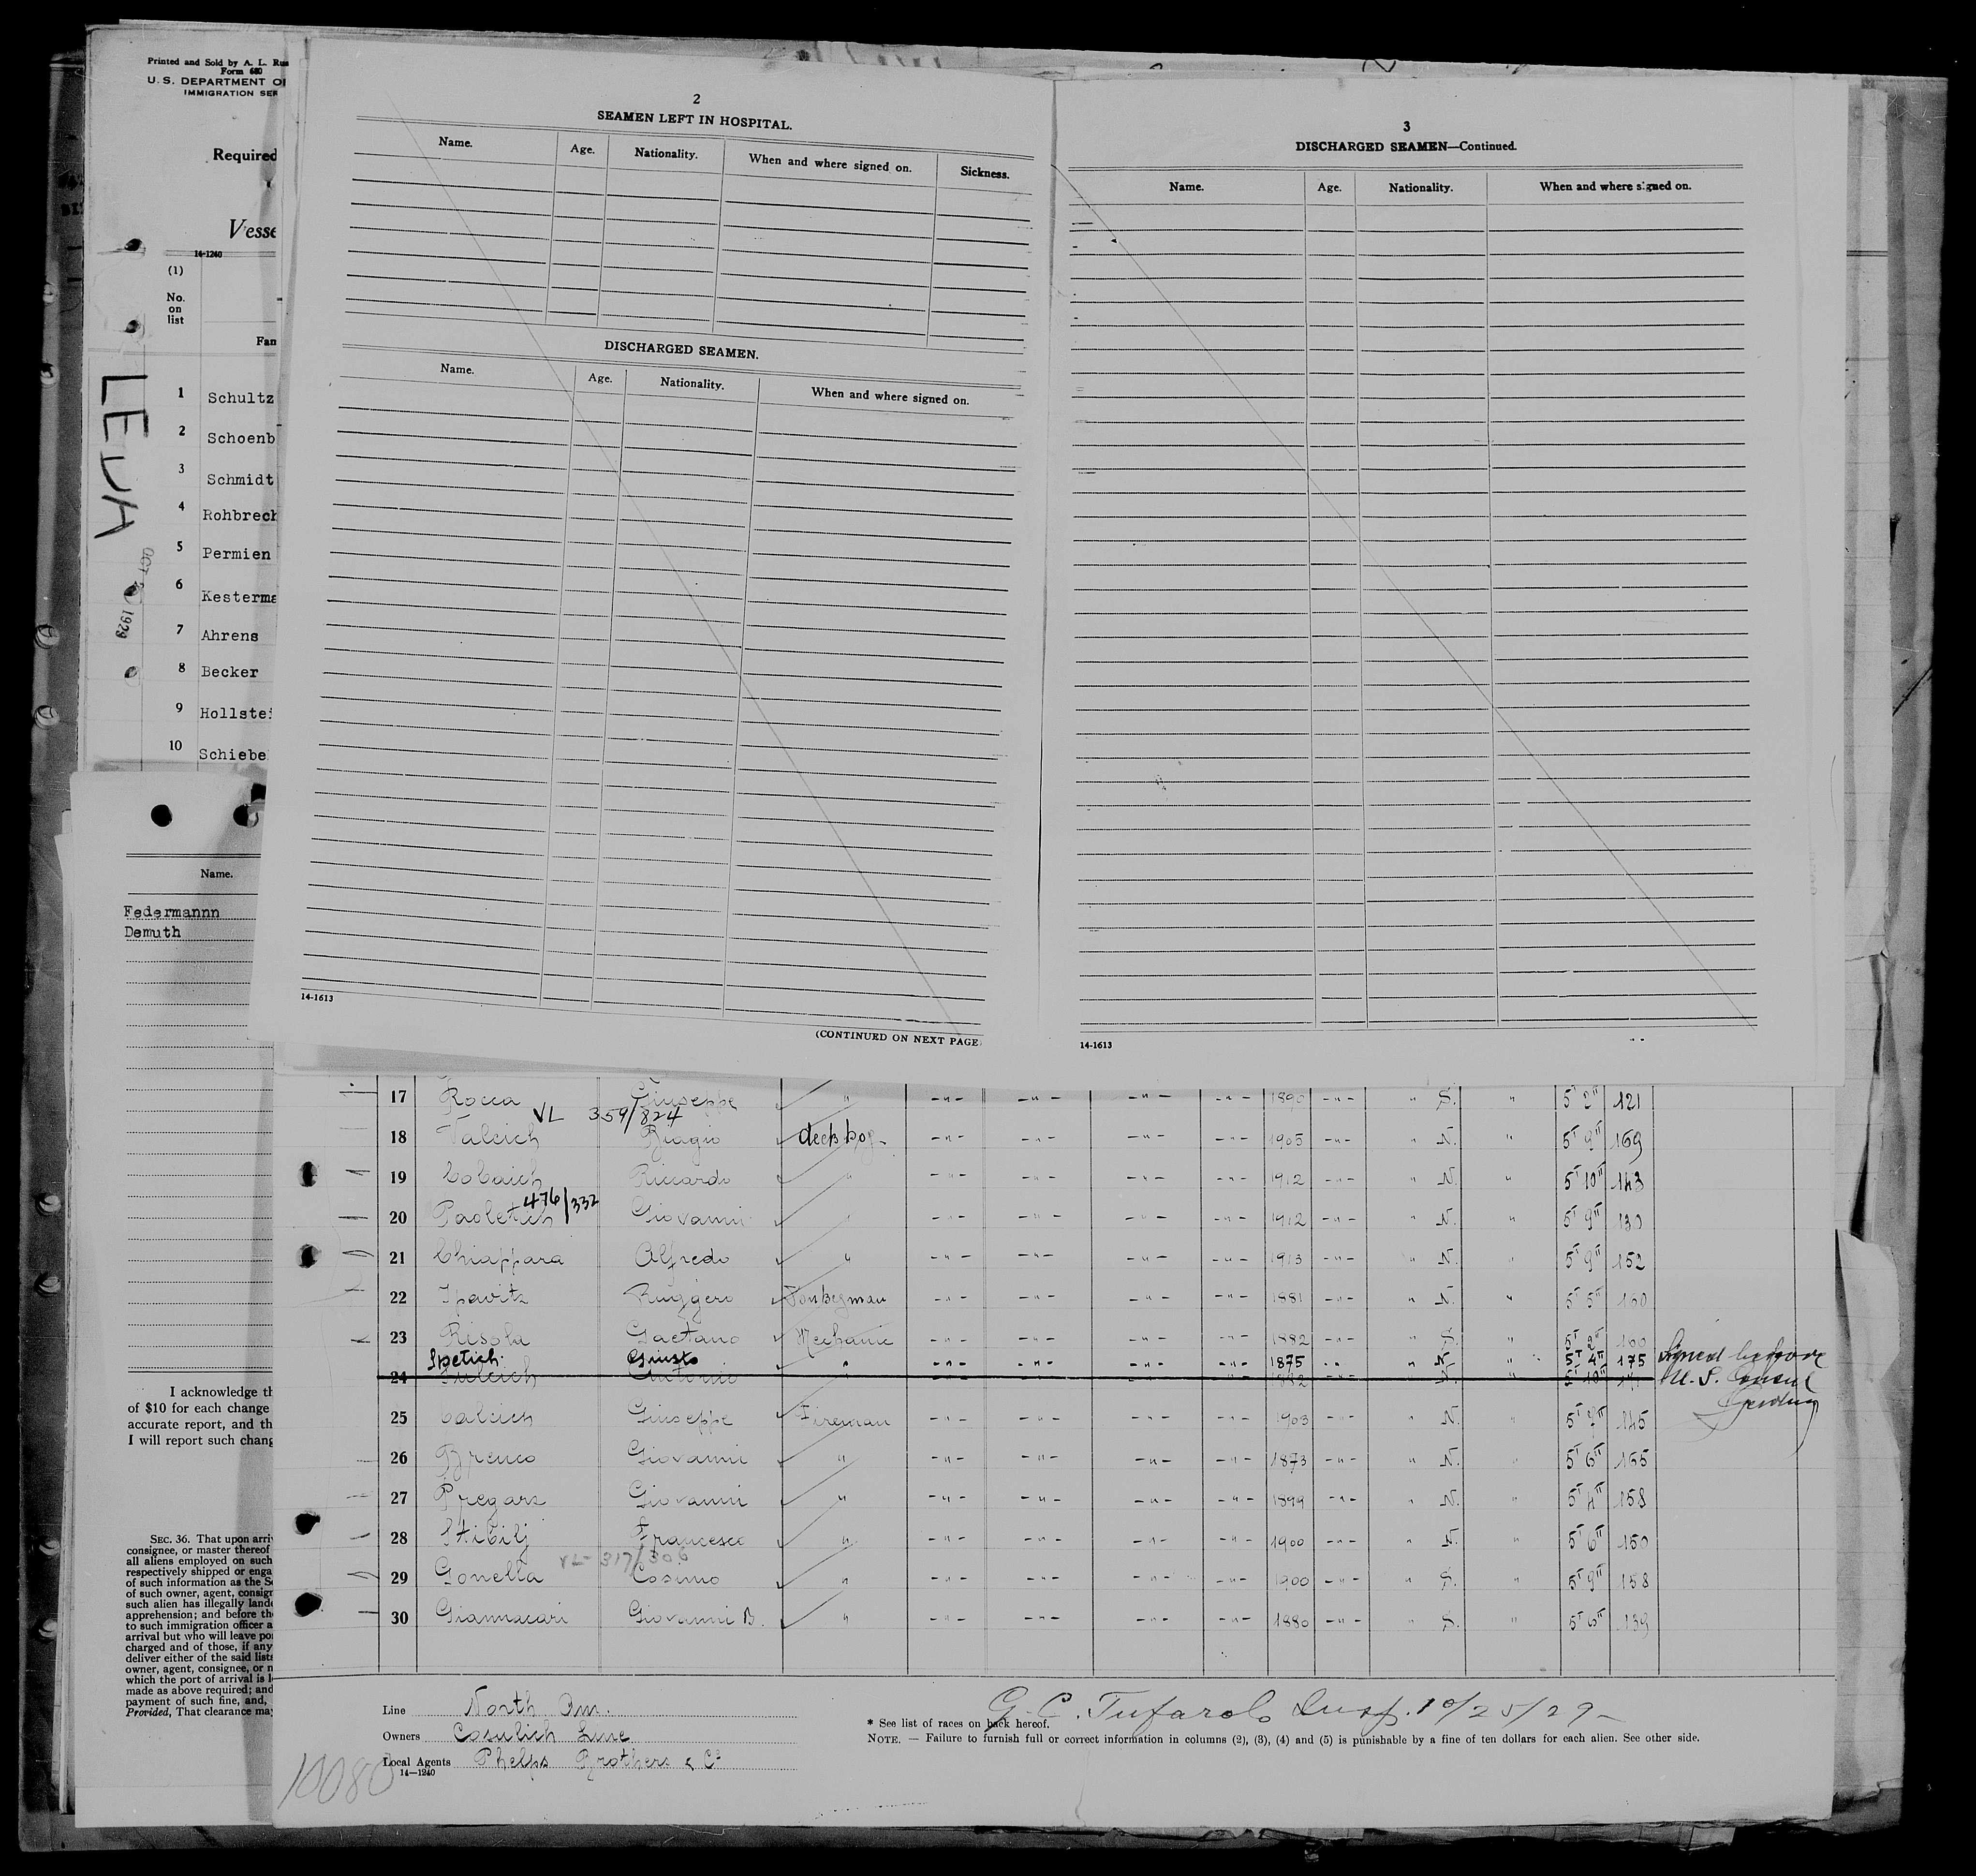 Printed and Sold by A. L. Rus
Form 680
U. S. DEPARTMENT OF
IMMIGRATION SER
Required
Vesse
14-1240
(1)
No.
on
list
Fam
1 Schultz
2 Schoenb
3 Schmidt
4 Rohbrech
5 Permien
6 Kesterma
7 Ahrens
8 Becker
9 Hollstei
10 Schiebe
1929
Name.
Federmannn
Demuth
I acknowledge th
of $10 for each change
accurate report, and th
I will report such chang
SEC. 36. That upon arri
consignee, or master thereof
all aliens employed on such
respectively shipped or enga
of such information as the S
of such owner, agent, consign
such alien has illegally land
apprehension; and before the
to such immigration officer a
arrival but who will leave po
charged and of those, if any
deliver either of the said lists
owner, agent, consignee, or m
which the port of arrival is l
made as above required; and
payment of such fine, and,
Provided, That clearance may
2
SEAMEN LEFT IN HOSPITAL.
Name. Age. Nationality. When and where signed on. Sickness.
DISCHARGED SEAMEN.
Name. Age. Nationality. When and where signed on.
14-1613
(CONTINUED ON NEXT PAGE
3
DISCHARGED SEAMEN—Continued.
Name. Age. Nationality. When and where signed on.
14-1613
17 Rocca Giuseppe " -"- -"- -"- -"- 1890 -"- " S. " 5' 2" 121
VL 359/824
18 Valcich Biagio deck boy -"- -"- -"- -"- 1905 -"- " N. 5' 9" 169
19 Riccardo " -"- -"- -"- -"- 1912 -"- " N. " 5' 10" 143
476/332
20 Paoletich Giovanni " -"- -"- -"- -"- 1912 -"- " N. " 5' 9" 130
21 Chiappara Alfredo " -"- -"- -"- -"- 1913 -"- " N. " 5' 9" 152
22 Ipavitz Ruggero Donkeyman -"- -"- -"- -"- 1881 -"- " N. " 5' 5" 160
23 Risola Gaetano Mechanic -"- -"- -"- -"- 1882 -"- " S. " 5' 2" 100
Spetich Giusto " -"- -"- -"- -"- 1875 -"- " N. " 5' 4" 175 Signed before
24 Antonio U. S. Consul
25 Calcich Giuseppe Fireman -"- -"- -"- -"- 1903 -"- " N. " 5' 9" 145
26 Brenco Giovanni " -"- -"- -"- -"- 1873 -"- " N. " 5' 6" 155
27 Pregarz Giovanni " -"- -"- -"- -"- 1899 -"- " N. " 5' 4" 158
28 Stibilj Francesco " -"- -"- -"- -"- 1900 -"- " N. " 5' 6" 150
VL-317/306
29 Gonella Cosimo " -"- -"- -"- -"- 1900 -"- " S. " 5' 9" 158
30 Giannacari Giovanni B. " -"- -"- -"- -"- 1880 -"- " S. " 5' 6" 139
Line North Am.
Owners Cosulich Line
Local Agents Phelps Brothers & Co
14—1240
10080
G. C. Tufarolo Insp. 10/25/29-
* See list of races on back hereof.
NOTE. — Failure to furnish full or correct information in columns (2), (3), (4) and (5) is punishable by a fine of ten dollars for each alien. See other side.